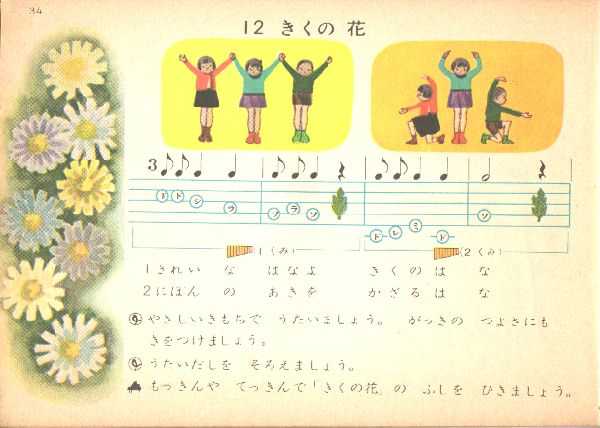 34
12 きくの 花
3
ド ド シ ラ ソ ラ ソ ド レ ミ ド ソ
1 (くみ) (2 くみ)
1 きれい な はなよ きくのは な
2 にほん の あきを かざるは な
やさしいきもちで うたいましょう。 がっきの つよさにも
きをつけましょう。
うたいだしを そろえましょう。
もっきんや てっきんで「きくの花」の ふしを ひきましょう。